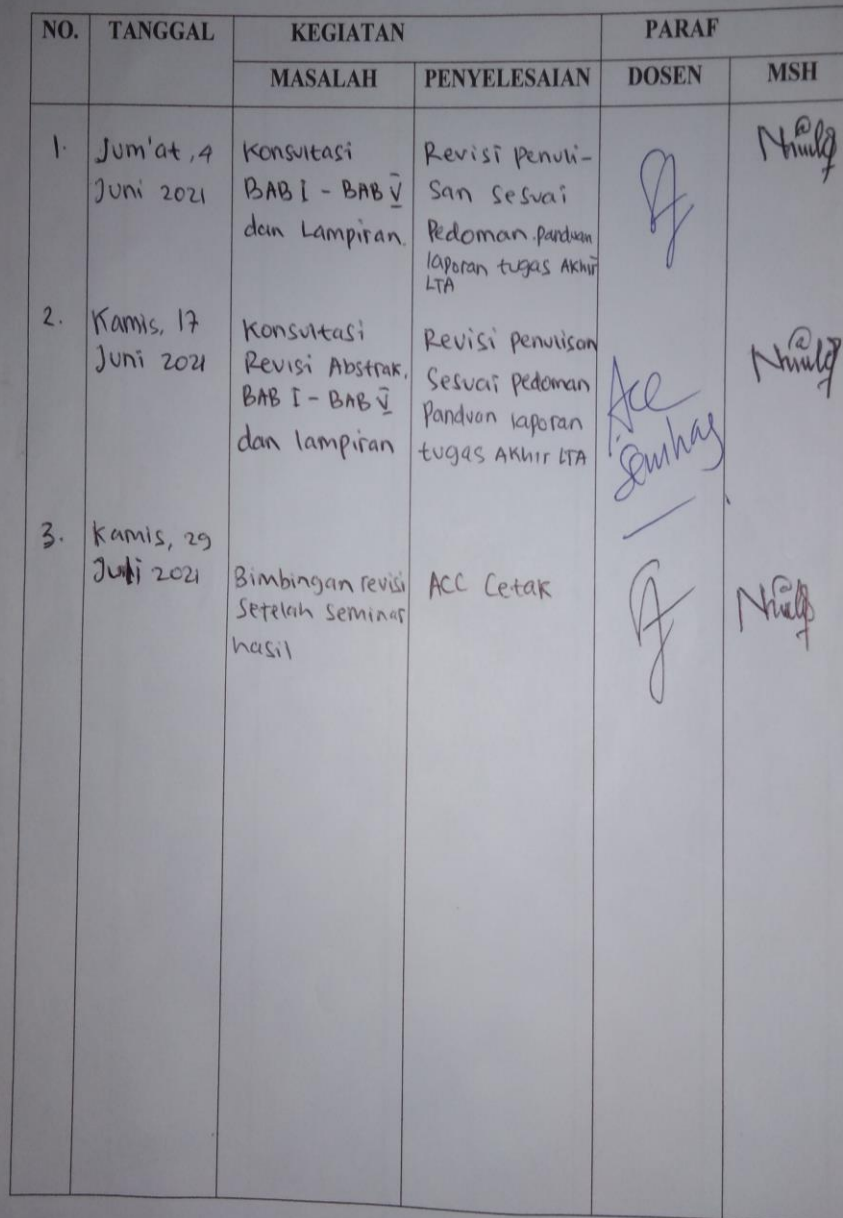 NO. TANGGAL KEGIATAN PARAF
MASALAH PENYELESAIAN DOSEN MSH
1. Jum'at, 4
Juni 2021
Konsultasi
BAB I - BAB V
dan Lampiran.
Revisi Penuli-
San sesuai
Pedoman panduan
laporan tugas Akhir
LTA
2. Kamis, 17
Juni 2021
Konsultasi
Revisi Abstrak,
BAB I - BAB V
dan lampiran
Revisi penulisan
Sesuai pedoman
Panduan laporan
tugas Akhir LTA
Acc
Semhas
3. Kamis, 29
Juli 2021
Bimbingan revisi
Setelah seminar
hasil
ACC Cetak